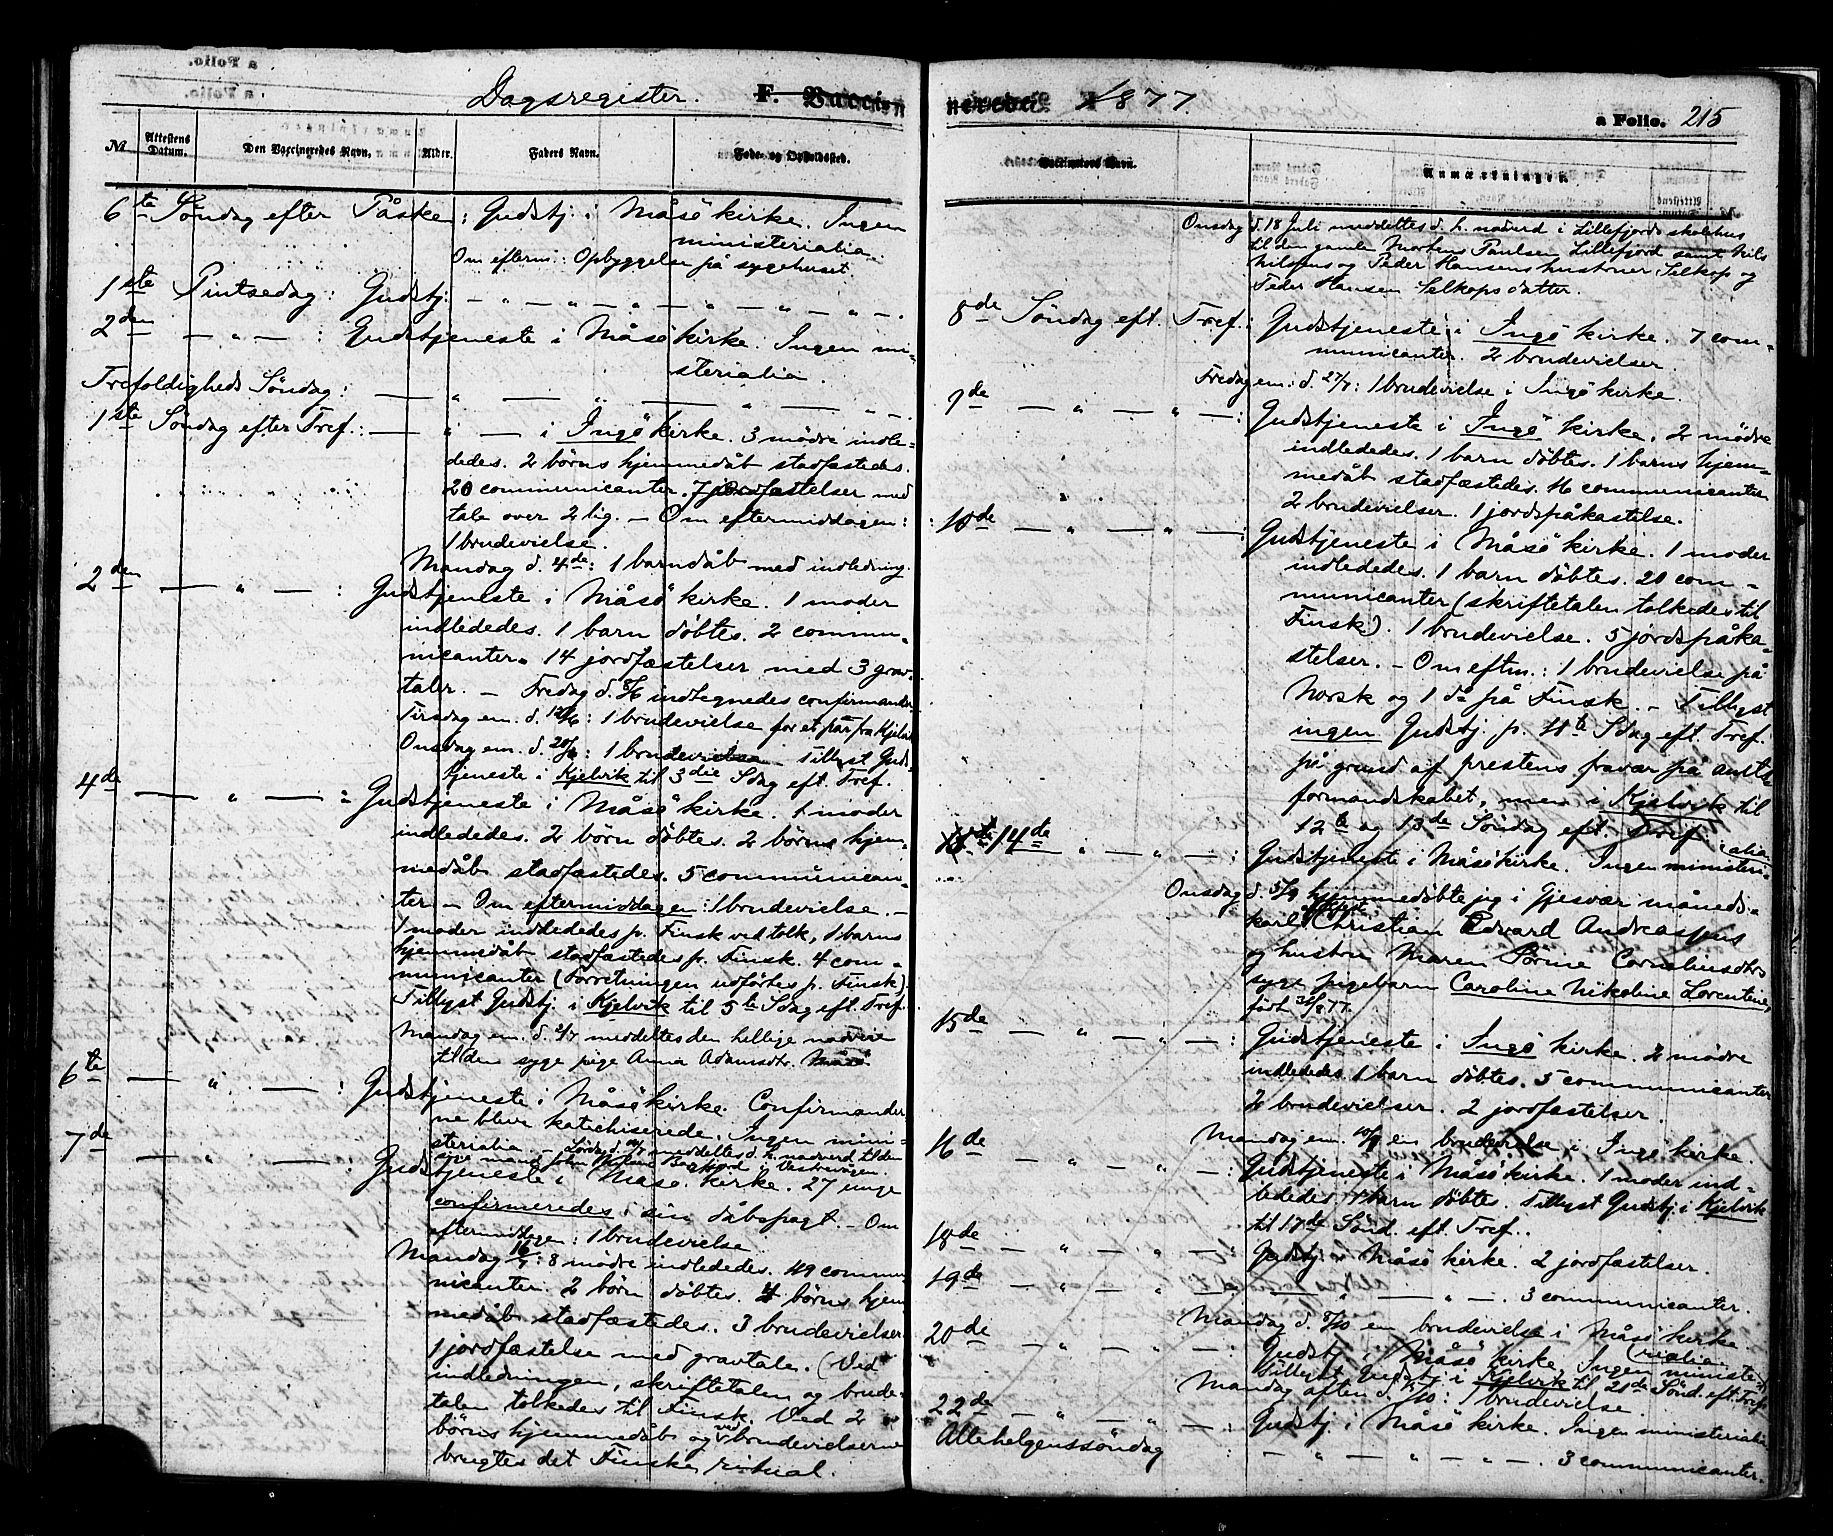 Dagsregister. F. Vaccinerede 1877
a Folio. 215
№ Attestens Datum. Den Vaccineredes Navn. Alder. Faders Navn. Føde- og Opholdssted.
6te Søndag efter Påske: Gudstj. i Måsö kirke. Ingen
ministerialia.
Om efterm: Opbyggelse på sygehuset.
1ste Pintsedag: Gudstj: — " — " — " — " — " — .
2den — " — : Gudstjeneste i Måsö kirke. Ingen mi-
sterialia.
Trefoldigheds Söndag: — " — " — " — " — .
1ste Söndag efter Tref.: — " — i Ingö kirke. 3 mödre indle-
dedes. 2 börns hjemmedåb stadfæstedes.
20 communicanter. 7 jordfæstelser med
tale over 2 lig. — Om eftermiddagen:
1 brudevielse.
Mandag d. 4de: 1 barndåb med indledning.
2den — " — : Gudstjeneste i Måsö kirke. 1 moder
indlededes. 1 barn döbtes. 2 commu-
nicanter. 14 jordfæstelser med 3 grav-
taler. — Fredag d. 8/6 indtegnedes confirmander
Tirsdag em. d. 12/6: 1 brudevielse for et par fra Kjelvik
Onsdag em. d. 20/6: 1 brudevielse — Tillyst Guds-
tjeneste i Kjelvik til 3die Sdag eft. Tref.
4de — " — : Gudstjeneste i Måsö kirke. 1 moder
indlededes. 2 börn döbtes. 2 börns hjem-
medåb stadfæstedes. 5 communican-
ter — Om eftermiddagen: 1 brudevielse. —
1 moder indlededes p. Finsk ved tolk, 1 barns
hjemmedåb stadfæstedes p. Finsk. 4 com-
municanter (Forretningen udförtes p. Finsk)
Tillyst Gudstj. i Kjelvik til 5te Sdag eft. Tref.
Mandag em. d. 2/7 meddeltes den hellige nadvere
til den syge pige Anna Adamsdtr. Måsö
6te — " — : Gudstjeneste i Måsö kirke. Confirmander-
ne blive katechiserede. Ingen mini-
sterialia. Lördag d. meddeltes d. h. nadverd til den
syge mand John
7de — " — : Gudstjeneste i Måsö kirke. 27 unge
confirmeredes i sin dåbspagt. — Om
eftermiddagen: 1 brudevielse
Mandag 16/7: 8 mødre indlededes. 49 commu-
nicanter. 2 börn döbtes. 4 börns hjem-
medåb stadfæstedes. 3 brudevielser.
1 jordfæstelse med gravtale. (Ved
indledningen, skriftetalen og brude-
talen tolkedes til Finsk. Ved 2
börns hjemmedåb og ved brudevielserne
brugtes det Finske ritual.
Vaccinators Navn. Anmærkninger.
Onsdag d. 18 Juli meddeltes d. h. nadverd i Lillefjords skolehus
til den gamle Morten Paulsen Lillefjord samt Nils
Nilsens og Peder Hansens hustruer Selkop og
Peder Hansen Selkops datter.
8de Söndag eft. Tref.: Gudstjeneste i Ingö kirke. 7 com-
municanter. 2 brudevielser.
Fredag em: d. 27/7: 1 brudevielse i Ingö kirke.
9de — " — " — : Gudstjeneste i Ingö kirke. 2 mödre
indlededes. 1 barn döbtes. 1 barns hjem-
medåb stadfæstedes. 16 communicanter
2 brudevielser. 1 jordspåkastelse.
10de — " — " — : Gudstjeneste i Måsö kirke. 1 moder
indlededes. 1 barn döbtes. 20 com-
municanter (skriftetalen tolkedes til
Finsk). 1 brudevielse. 5 jordspåka-
stelser. — Om eftm.: 1 brudevielse på
Norsk og 1 do på Finsk. — Tillyst
ingen Gudstj. p. 11te Sdag eft. Tref.
på grund af prestens fravær på amts-
formandskabet, men i Kjelvik til
12te og 13de Söndag eft. Tref.
14de " — " — : Gudstjeneste i Måsö kirke. Ingen ministeri-
alia.
Onsdag d. 5/9 hjemmedöbte jeg i Gjesvær måneds-
karl Christian Edvard Andreassens
og hustru Maren Sörine Corneliusdtrs
syge pigebarn Caroline Nikoline Lorentine,
födt 31/8 77.
15de — " — : Gudstjeneste i Ingö kirke. 2 mödre
indlededes. 1 barn döbtes. 5 communicanter
2 brudevielser. 2 jordfæstelser.
Mandag em. 10/9 en brudevielse i Ingö kirke.
16de — " — " — : Gudstjeneste i Måsö kirke. 1 moder ind-
lededes. 1 barn döbtes. Tillyst Gudstj. i Kjelvik
til 17de Sönd. eft. Tref..
18de — " — " — : Gudstj. i Måsö kirke. 2 jordfæstelser.
19de — " — " — " — " — . 3 communicanter.
Mandag d. 8/10 en brudevielse i Måsö kirke
20de — " — " — : Gudstj. i Måsö kirke. Ingen ministe-
rialia
Tillyst Gudstj i Kjelvik til 21de Sönd. eft. Tref.
Mandag aften d. /10: 1 brudevielse.
22de — " — " — : Gudstj. i Måsö kirke. Ingen ministerialia
Allehelgenssöndag : — " — " — " — . 3 communicanter.